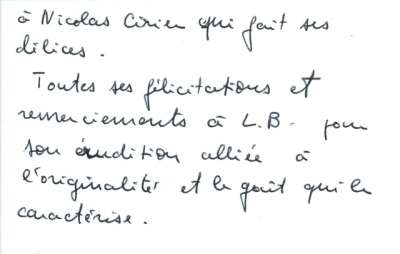 à Nicolas Cirier qui fait ses
délices.
Toutes ses félicitations et
remerciements à L.B. pour
son érudition alliée à
l'originalité et le goût qui le
caractérise.